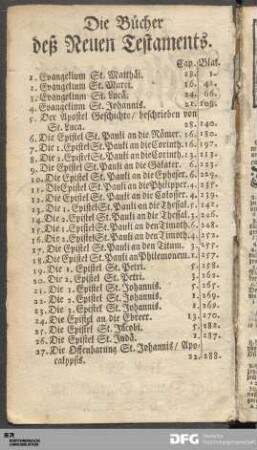 Die Bücher
deß Neuen Testaments.
Cap. Blat.
1. Evangelium St. Matthäi. 28. 1.
2. Evangelium St. Marci. 16. 41.
3. Evangelium St. Lucä. 24. 66.
4. Evangelium St. Johannis. 21. 108.
5. Der Apostel Geschichte / beschrieben von
St. Luca. 28. 140.
6. Die Epistel St. Pauli an die Römer. 16. 180.
7. Die 1. Epistel St. Pauli an die Corinth. 16. 197.
8. Die 2. Epistel St. Pauli an die Corinth. 13. 213.
9. Die Epistel St. Pauli an die Galater. 6. 223.
10. Die Epistel St. Pauli an die Epheser. 6. 229.
11. Die Epistel St. Pauli an die Philipper. 4. 235.
12. Die Epistel St. Pauli an die Colosser. 4. 239.
13. Die 1. Epistel St. Pauli an die Thessal. 5. 242.
14. Die 2. Epistel St. Pauli an die Thessal. 3. 246.
15. Die 1. Epistel St. Pauli an den Timoth. 6. 248.
16. Die 2. Epistel St. Pauli an den Timoth. 4. 252.
17. Die Epistel St. Pauli an den Titum. 3. 255.
18. Die Epistel St. Pauli an Philemonem. 1. 257.
19. Die 1. Epistel St. Petri. 5. 258.
20. Die 2. Epistel St. Petri. 3. 262.
21. Die 1. Epistel St. Johannis. 5. 265.
22. Die 2. Epistel St. Johannis. 1. 269.
23. Die 3. Epistel St. Johannis. 1. 269.
24. Die Epistel an die Ebreer. 13. 270.
25. Die Epistel St. Jacobi. 5. 282.
26. Die Epistel St. Judä. 1. 287.
27. Die Offenbarung St. Johannis / Apo-
calypsis. 22. 288.
DFG Deutsche
Forschungsgemeinschaft